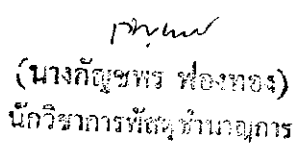 (นางกัญชพร ฟองทอง)
นักวิชาการพัสดุชำนาญการ